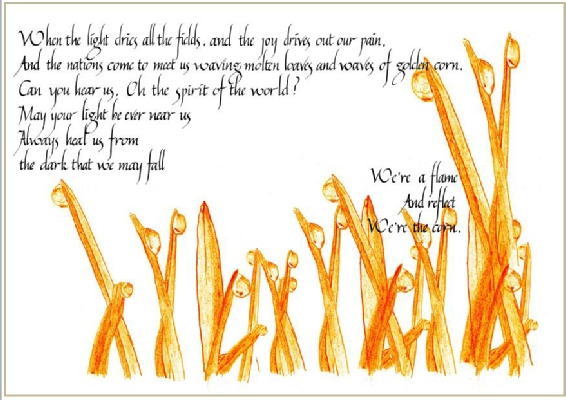 When the light dries all the fields, and the joy drives out our pain,
And the nations come to meet us waving molten loaves and waves of golden corn.
Can you hear us, Oh the spirit of the world?
May your light be ever near us
Always heal us from
the dark that we may fall
We're a flame
And reflect
We're the corn.